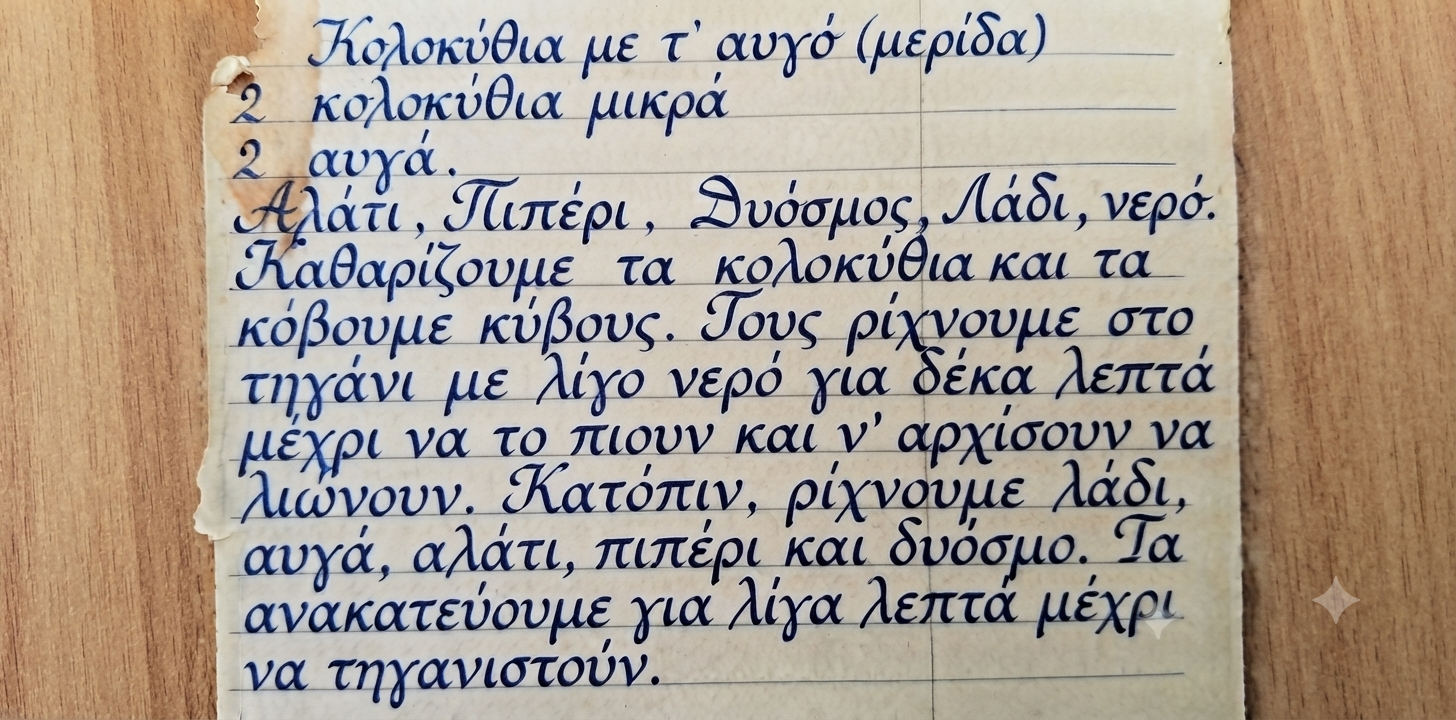 Κολοκύθια με τ' αυγό (μερίδα)
2 κολοκύθια μικρά
2 αυγά.
Αλάτι, Πιπέρι, Δυόσμος, Λάδι, νερό.
Καθαρίζουμε τα κολοκύθια και τα
κόβουμε κύβους. Τους ρίχνουμε στο
τηγάνι με λίγο νερό για δέκα λεπτά
μέχρι να το πιουν και ν' αρχίσουν να
λιώνουν. Κατόπιν, ρίχνουμε λάδι,
αυγά, αλάτι, πιπέρι και δυόσμο. Τα
ανακατεύουμε για λίγα λεπτά μέχρι
να τηγανιστούν.